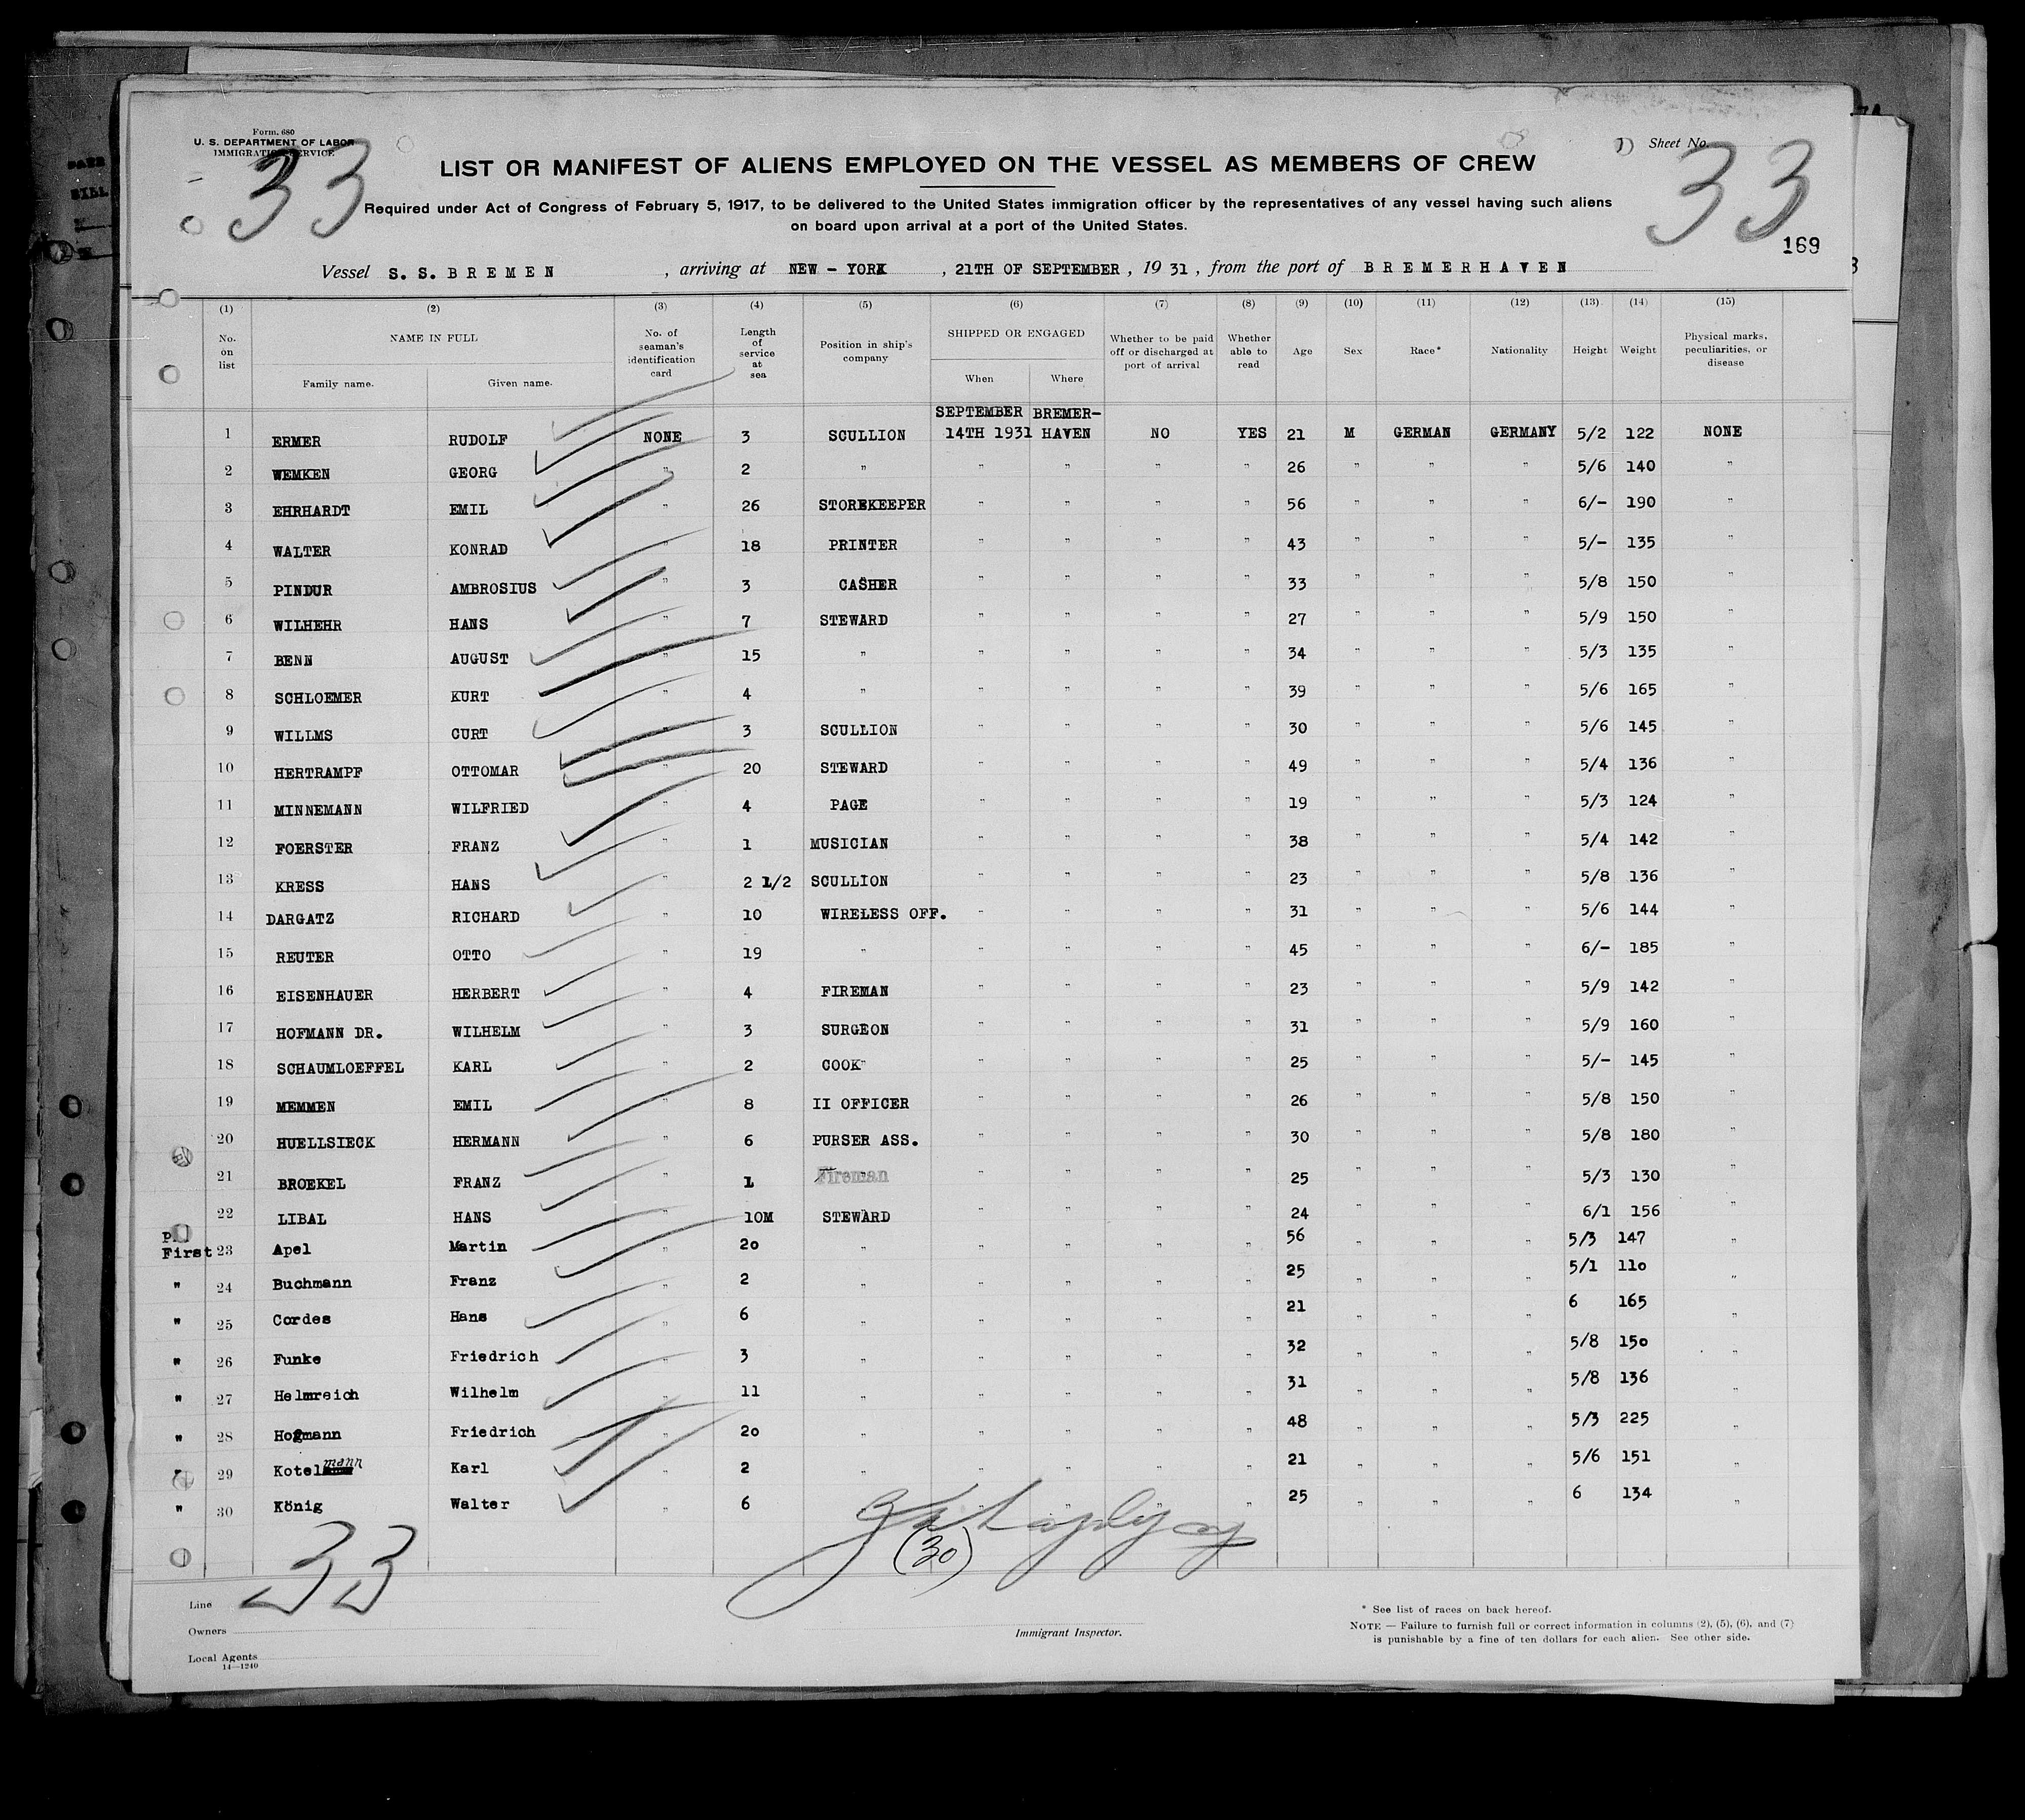 Form. 680
U. S. DEPARTMENT OF LABOR
IMMIGRATION SERVICE
33
Sheet No.
33
169
LIST OR MANIFEST OF ALIENS EMPLOYED ON THE VESSEL AS MEMBERS OF CREW
Required under Act of Congress of February 5, 1917, to be delivered to the United States immigration officer by the representatives of any vessel having such aliens
on board upon arrival at a port of the United States.
Vessel S. S. BREMEN , arriving at NEW - YORK , 21TH OF SEPTEMBER , 19 31 , from the port of BREMERHAVEN
(1) (2) (3) (4) (5) (6) (7) (8) (9) (10) (11) (12) (13) (14) (15)
No. on list NAME IN FULL Family name. Given name. No. of seaman's identification card Length of service at sea Position in ship's company SHIPPED OR ENGAGED When Where Whether to be paid off or discharged at port of arrival Whether able to read Age Sex Race* Nationality Height Weight Physical marks, peculiarities, or disease
SEPTEMBER BREMER-
1 ERMER RUDOLF NONE 3 SCULLION 14TH 1931 HAVEN NO YES 21 M GERMAN GERMANY 5/2 122 NONE
2 WEMKEN GEORG " 2 " " " " " 26 " " " 5/6 140 "
3 EHRHARDT EMIL " 26 STOREKEEPER " " " " 56 " " " 6/- 190 "
4 WALTER KONRAD " 18 PRINTER " " " " 43 " " " 5/- 135 "
5 PINDUR AMBROSIUS " 3 CASHER " " " " 33 " " " 5/8 150 "
6 WILHEHR HANS " 7 STEWARD " " " " 27 " " " 5/9 150 "
7 BENN AUGUST " 15 " " " " " 34 " " " 5/3 135 "
8 SCHLOEMER KURT " 4 " " " " " 39 " " " 5/6 165 "
9 WILLMS CURT " 3 SCULLION " " " " 30 " " " 5/6 145 "
10 HERTRAMPF OTTOMAR " 20 STEWARD " " " " 49 " " " 5/4 136 "
11 MINNEMANN WILFRIED " 4 PAGE " " " " 19 " " " 5/3 124 "
12 FOERSTER FRANZ " 1 MUSICIAN " " " " 38 " " " 5/4 142 "
13 KRESS HANS " 2 1/2 SCULLION " " " " 23 " " " 5/8 136 "
14 DARGATZ RICHARD " 10 WIRELESS OFF. " " " " 31 " " " 5/6 144 "
15 REUTER OTTO " 19 " " " " " 45 " " " 6/- 185 "
16 EISENHAUER HERBERT " 4 FIREMAN " " " " 23 " " " 5/9 142 "
17 HOFMANN DR. WILHELM " 3 SURGEON " " " " 31 " " " 5/9 160 "
18 SCHAUMLOEFFEL KARL " 2 COOK " " " " 25 " " " 5/- 145 "
19 MEMMEN EMIL " 8 II OFFICER " " " " 26 " " " 5/8 150 "
20 HUELLSIECK HERMANN " 6 PURSER ASS. " " " " 30 " " " 5/8 180 "
21 BROEKEL FRANZ " 1 Fireman " " " " 25 " " " 5/3 130 "
22 LIBAL HANS " 10M STEWARD " " " " 24 " " " 6/1 156 "
First 23 Apel Martin " 2o " " " " " 56 " " " 5/3 147 "
" 24 Buchmann Franz " 2 " " " " " 25 " " " 5/1 11o "
" 25 Cordes Hans " 6 " " " " " 21 " " " 6 165 "
" 26 Funke Friedrich " 3 " " " " " 32 " " " 5/8 15o "
" 27 Helmreich Wilhelm " 11 " " " " " 31 " " " 5/8 136 "
" 28 Hogmann Friedrich " 2o " " " " " 48 " " " 5/3 225 "
" 29 Kotelmann Karl " 2 " " " " " 21 " " " 5/6 151 "
" 30 König Walter " 6 " " " " " 25 " " " 6 134 "
(30)
33
Line
Owners
Local Agents
14—1240
Immigrant Inspector.
* See list of races on back hereof.
NOTE — Failure to furnish full or correct information in columns (2), (5), (6), and (7)
is punishable by a fine of ten dollars for each alien. See other side.